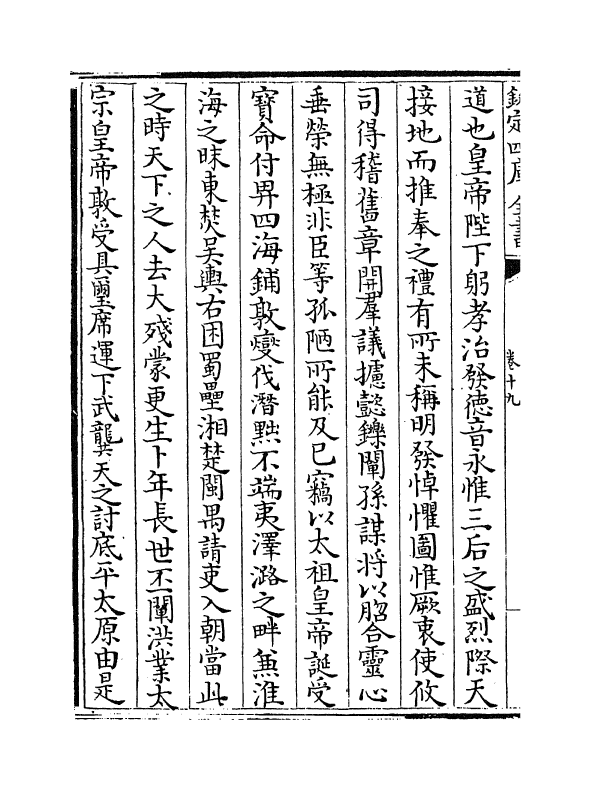 欽定四庫全書
卷十九
道也皇帝陛下躬孝治發德音永惟三后之盛烈際天
接地而推奉之禮有所未稱明發悼懼圖惟厥衷使攸
司得稽舊章開羣議攄懿鑠闡孫謀將以脗合靈心
垂榮無極非臣等孤陋所能及已竊以太祖皇帝誕受
寶命付畀四海鋪敦燮伐潛黜不端夷澤潞之畔兼淮
海之昧東焚吳輿右困蜀壘湘楚閩禺請吏入朝當此
之時天下之人去大殘蒙更生卜年長世丕闡洪業太
宗皇帝敦受具璽席運下武龔天之討底平太原由是